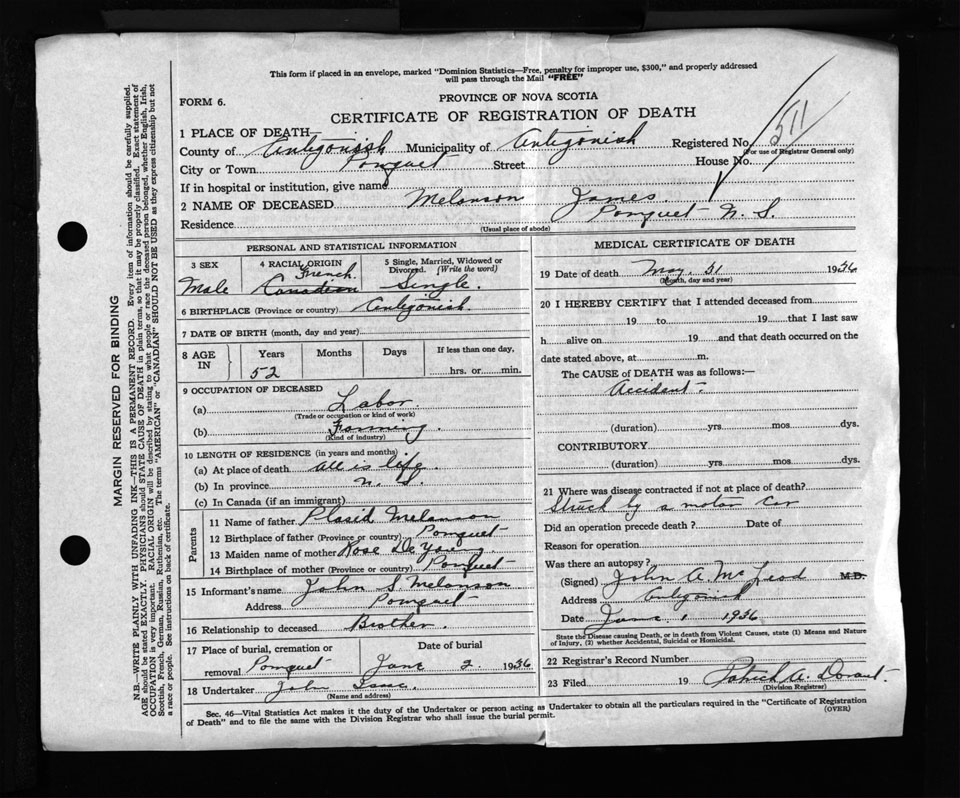 This form if placed in an envelope, marked "Dominion Statistics—Free, penalty for improper use, $300," and properly addressed
will pass through the Mail "FREE"
FORM 6.
PROVINCE OF NOVA SCOTIA
CERTIFICATE OF REGISTRATION OF DEATH
1 PLACE OF DEATH—
County of Antigonish Municipality of Antigonish Registered No. 511
(For use of Registrar General only)
City or Town Pomquet Street House No.
If in hospital or institution, give name
2 NAME OF DECEASED Melanson James.
Residence Pomquet N. S.
(Usual place of abode)
PERSONAL AND STATISTICAL INFORMATION
3 SEX 4 RACIAL ORIGIN 5 Single, Married, Widowed or Divorced. (Write the word)
Male French Canadian Single.
6 BIRTHPLACE (Province or country) Antigonish
7 DATE OF BIRTH (month, day and year)
8 AGE IN Years Months Days If less than one day,
52 hrs. or min.
9 OCCUPATION OF DECEASED
(a) Labor.
(Trade or occupation or kind of work)
(b) Farming.
(Kind of industry)
10 LENGTH OF RESIDENCE (in years and months)
(a) At place of death all is life
(b) In province N. S.
(c) In Canada (if an immigrant)
Parents
11 Name of father Plasid Melanson
12 Birthplace of father (Province or country) Pomquet
13 Maiden name of mother Rose De Young.
14 Birthplace of mother (Province or country) Pomquet
15 Informant's name John S Melanson
Address Pomquet
16 Relationship to deceased Brother.
17 Place of burial, cremation or removal Date of burial
Pomquet June 2. 1936
18 Undertaker John
(Name and address)
MEDICAL CERTIFICATE OF DEATH
19 Date of death May. 31 1936
(Month, day and year)
20 I HEREBY CERTIFY that I attended deceased from
19 to 19 that I last saw
h alive on 19 and that death occurred on the
date stated above, at m.
The CAUSE of DEATH was as follows:—
Accident.
(duration) yrs. mos. dys.
CONTRIBUTORY
(duration) yrs. mos. dys.
21 Where was disease contracted if not at place of death?
Struck by a motor Car
Did an operation precede death? Date of
Reason for operation
Was there an autopsy?
(Signed) John A. McLeod M.D.
Address Antigonish
Date June 1 1936
State the Disease causing Death, or in death from Violent Causes, state (1) Means and Nature
of Injury, (2) whether Accidental, Suicidal or Homicidal.
22 Registrar's Record Number
23 Filed 19 Patrick A.
(Division Registrar)
Sec. 46—Vital Statistics Act makes it the duty of the Undertaker or person acting as Undertaker to obtain all the particulars required in the "Certificate of Registration
of Death" and to file the same with the Division Registrar who shall issue the burial permit.
(OVER)
MARGIN RESERVED FOR BINDING
N.B.—WRITE PLAINLY WITH UNFADING INK—THIS IS A PERMANENT RECORD. Every item of information should be carefully supplied.
AGE should be stated EXACTLY. PHYSICIANS should STATE CAUSE OF DEATH in plain terms, so that it may be properly classified. Exact statement of
OCCUPATION is very important. RACIAL ORIGIN will be described by stating to what people or race the deceased person belonged, whether English, Irish,
Scottish, French, German, Russian, Ruthenian, etc. The terms "AMERICAN" or "CANADIAN" SHOULD NOT BE USED as they express citizenship but not
a race or people. See instructions on back of certificate.